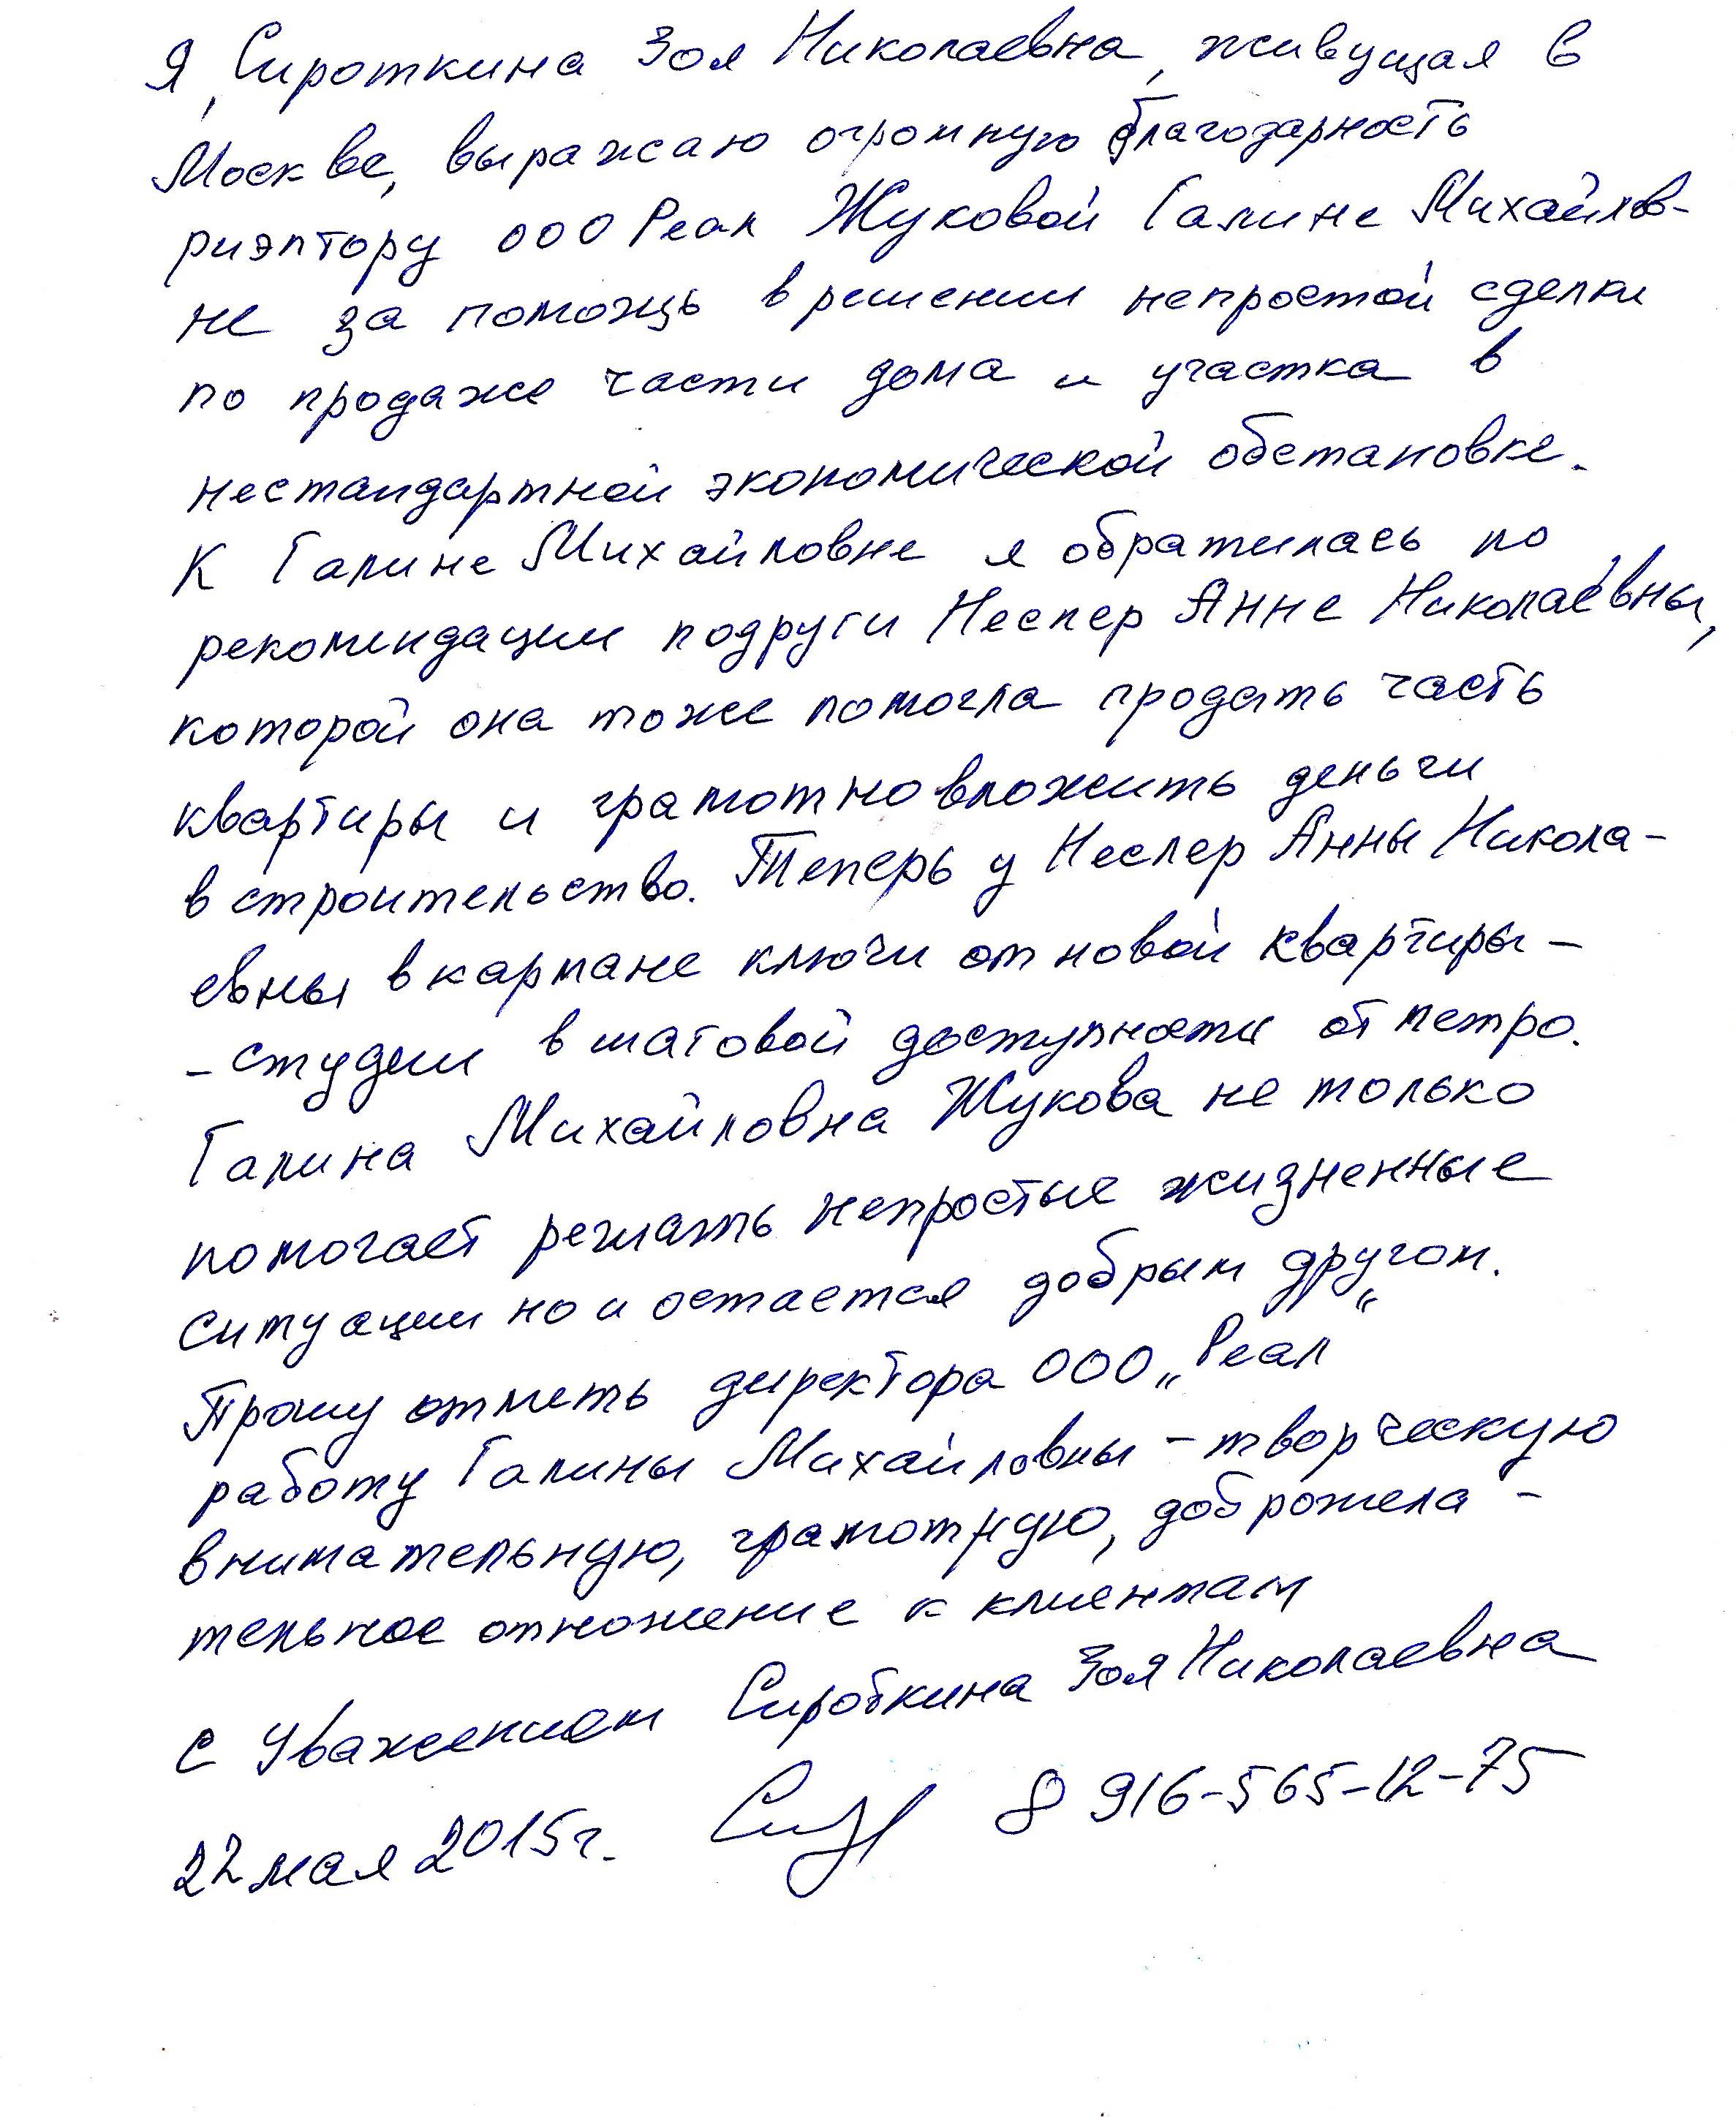 Я, Сироткина Зоя Николаевна, живущая в
Москве, выражаю огромную благодарность
риэлтору ООО Реал Жуковой Галине Михайлов-
не за помощь в решении непростой сделки
по продаже части дома и участка в
нестандартной экономической обстановке.
К Галине Михайловне я обратилась по
рекомендации подруги Неспер Анне Николаевны,
которой она тоже помогла продать часть
квартиры и грамотно вложить деньги
в строительство. Теперь у Неспер Анны Никола-
евны в кармане ключи от новой квартиры-
-студии в шаговой доступности от метро.
Галина Михайловна Жукова не только
помогает решать непростые жизненные
ситуации но и остается добрым другом.
Прошу отметь директора ООО „Реал“
работу Галины Михайловны - творческую
внимательную, грамотную, доброжела-
тельное отношение к клиентам
С Уважением Сироткина Зоя Николаевна
22 мая 2015г. 8 916-565-12-75